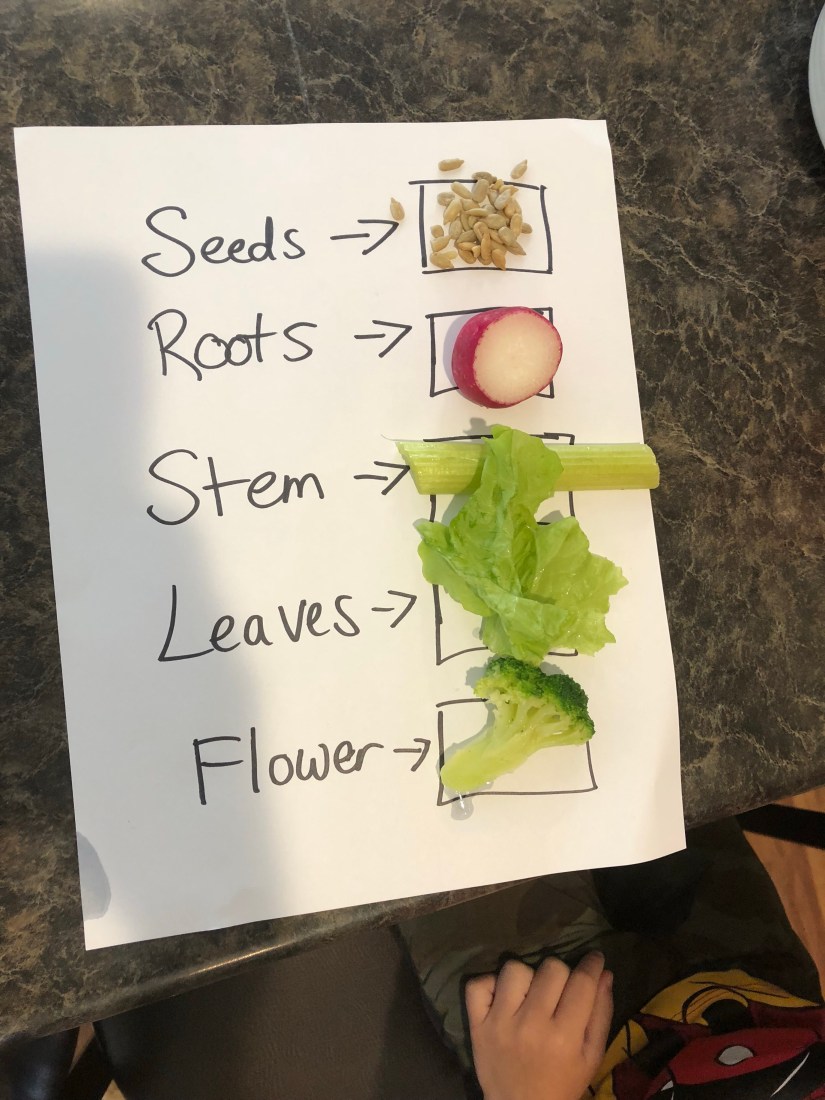 Seeds →
Roots →
Stem →
Leaves →
Flower →